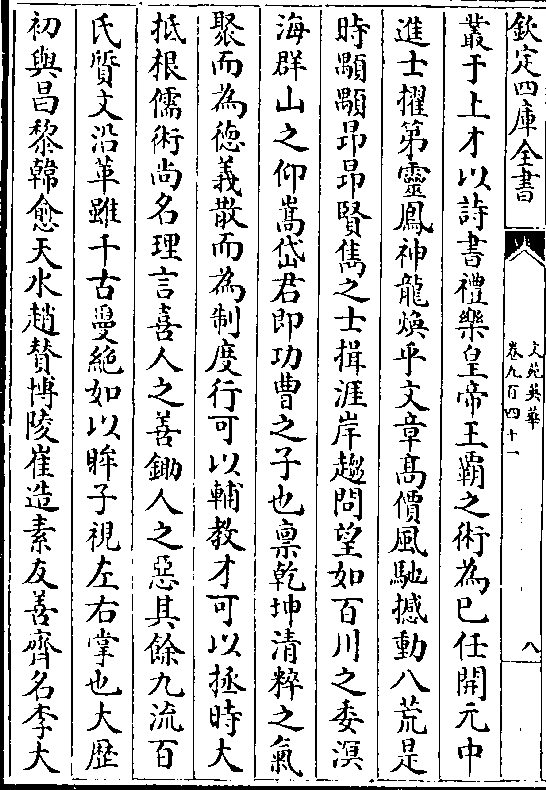 欽定四庫全書
文苑英華
卷九百四十一
八
叢于上才以詩書禮樂皇帝王霸之術為已任開元中
進士擢第靈鳳神龍煥乎文章髙價風馳撼動八荒是
時顒顒昂昂賢雋之士揖涯岸趨問望如百川之委溟
海群山之仰嵩岱君即功曹之子也禀乾坤清粹之氣
聚而為徳義散而為制度行可以輔教才可以拯時大
抵根儒術尚名理言喜人之善鋤人之惡其餘九流百
氏質文沿革雖千古曼絶如以眸子視左右掌也大歴
初與昌黎韓愈天水趙賛博陵崔造素友善齊名李大